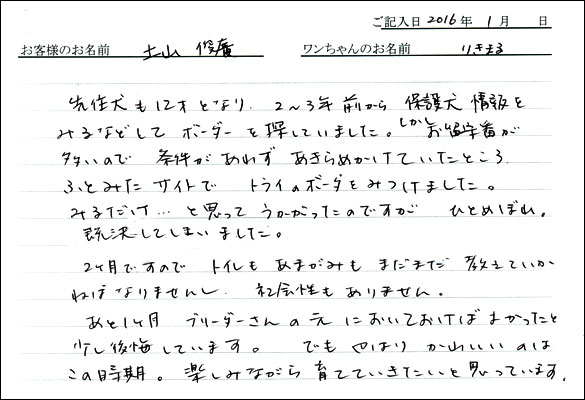 ご記入日 2016年 1月 日
お客様のお名前 土山 俊廣 ワンちゃんのお名前 りきまる
先住犬も12才となり、2~3年前から 保護犬情報を
みるなどして ボーダーを探していました。しかし お留守番が
多いので 条件があわず あきらめかけていたところ、
ふとみた サイトで トライのボーダをみつけました。
みるだけ… と思って うかがったのですが ひとめぼれ。
即決してしまいました。
2ヶ月ですので トイレも あまがみも まだまだ 教えていか
ねばなりませんし、社会性もありません。
あと1ヶ月 ブリーダーさんの元においておけばよかったと
少し後悔しています。 でも やはり か山いいのは
この時期。楽しみながら 育てていきたいと思っています。